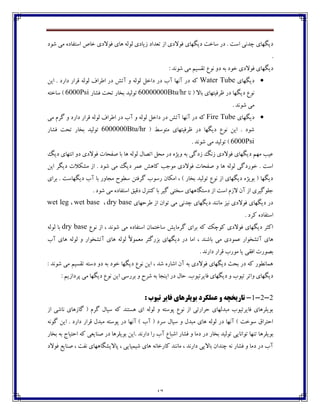 دیگهای چدنی است . در ساخت دیگهای فولادی از تعداد زیادی لوله های فولادی خاص استفاده می شود
.
دیگهای فولادی خود به دو نوع تقسیم می شوند :
• دیگهای Water Tube که در آنها آب در داخل لوله و آتش در اطراف لوله قرار دارد . این
نوع دیگها در ظرفیتهای بالا ( تا 60000000Btu/hr تولید بخار تحت فشار 6000Psi ) ساخته
می شوند .
• دیگهای Fire Tube که در آنها آتش در داخل لوله و آب در اطراف لوله قرار دارد و گرم می
شود . این نوع دیگها در ظرفیتهای متوسط ( 6000000Btu/hr تولید بخار تحت فشار
6000Psi ) تولید می شوند .
عیب مهم دیگهای فولادی زنگ زدگی به ویژه در محل اتصال لوله ها با صفحات فولادی دو انتهای دیگ
است . خوردگی لوله ها و صفحات فولادی موجب کاهش عمر دیگ می شود . از مشکلات دیگر این
دیگها ( بویژه دیگهای از نوع تولید بخار ) ، امکان رسوب گرفتن سطوح مجاور با آب دیگهاست . برای
جلوگیری از آن لازم است از دستگاههای سختی گیر با کنترل دقیق استفاده می شود .
در دیگهای فولادی نیز مانند دیگهای چدنی می توان از طرحهای wet leg ، wet base ، dry base
استفاده کرد .
اکثر دیگهای فولادی کوچک که برای گرمایش ساختمان استفاده می شوند ، از نوع dry base با لوله
های آتشخوار عمودی می باشند ، اما در دیگهای بزرگتر معمولاً لوله های آتشخوار و لوله های آب
بصورت افقی یا مورب قرار دارند .
همانطور که در بحث دیگهای فولادی به آن اشاره شد ، این نوع دیگها خود به دو دسته تقسیم می شوند :
دیگهای واتر تیوب و دیگهای فایرتیوب. حال در اینجا به شرح و بررسی این نوع دیگها می پردازیم :
2-2-1- تاریخچه و عملکرد بویلرهای فایر تیوب :
بویلرهای فایرتیوب مبدلهای حرارتی از نوع پوسته و لوله ای هستند که سیال گرم ( گازهای ناشی از
احتراق سوخت ) آنها در لوله های مبدل و سیال سرد ( آب ) آنها در پوسته مبدل قرار دارد . این گونه
بویلرها تنها توانایی تولید بخار در دما و فشار اشباع آب را دارند .این بویلرها در صنایعی که احتیاج به بخار
آب در دما و فشار نه چندان بالایی دارند ، مانند کارخانه های شیمیایی ، پالایشگاههای نفت ، صنایع فولاد